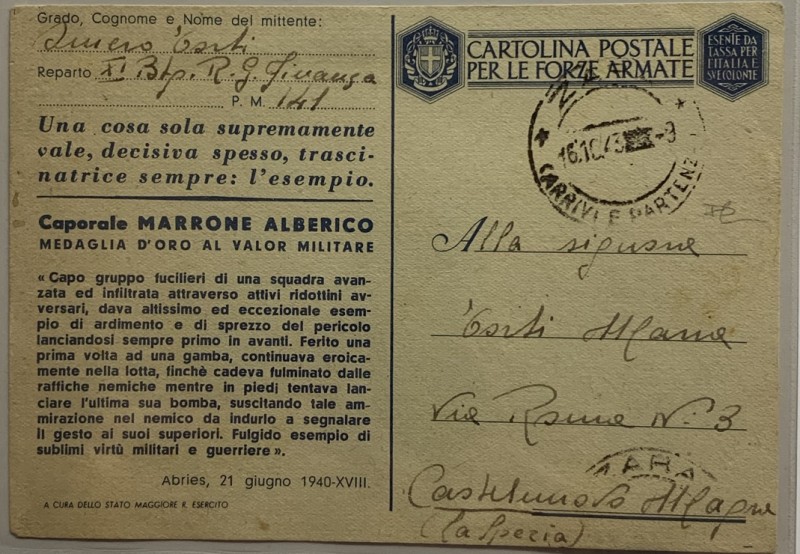 Grado, Cognome e Nome del mittente:
Reparto XI Btg. R. G. Finanza
P. M. 141
Una cosa sola supremamente
vale, decisiva spesso, trasci-
natrice sempre: l'esempio.
Caporale MARRONE ALBERICO
MEDAGLIA D'ORO AL VALOR MILITARE
«Capo gruppo fucilieri di una squadra avan-
zata ed infiltrata attraverso attivi ridottini av-
versari, dava altissimo ed eccezionale esem-
pio di ardimento e di sprezzo del pericolo
lanciandosi sempre primo in avanti. Ferito una
prima volta ad una gamba, continuava eroica-
mente nella lotta, finchè cadeva fulminato dalle
raffiche nemiche mentre in piedi tentava lan-
ciare l'ultima sua bomba, suscitando tale am-
mirazione nel nemico da indurlo a segnalare
il gesto ai suoi superiori. Fulgido esempio di
sublimi virtù militari e guerriere».
Abries, 21 giugno 1940-XVIII.
A CURA DELLO STATO MAGGIORE R. ESERCITO
CARTOLINA POSTALE
PER LE FORZE ARMATE
ESENTE DA
TASSA PER
L'ITALIA E
SUE COLONIE
(ARRIVI E PARTENZ
Alla signora
Maria
Via Roma N. 3
Castelnuovo Magra
(La Spezia)